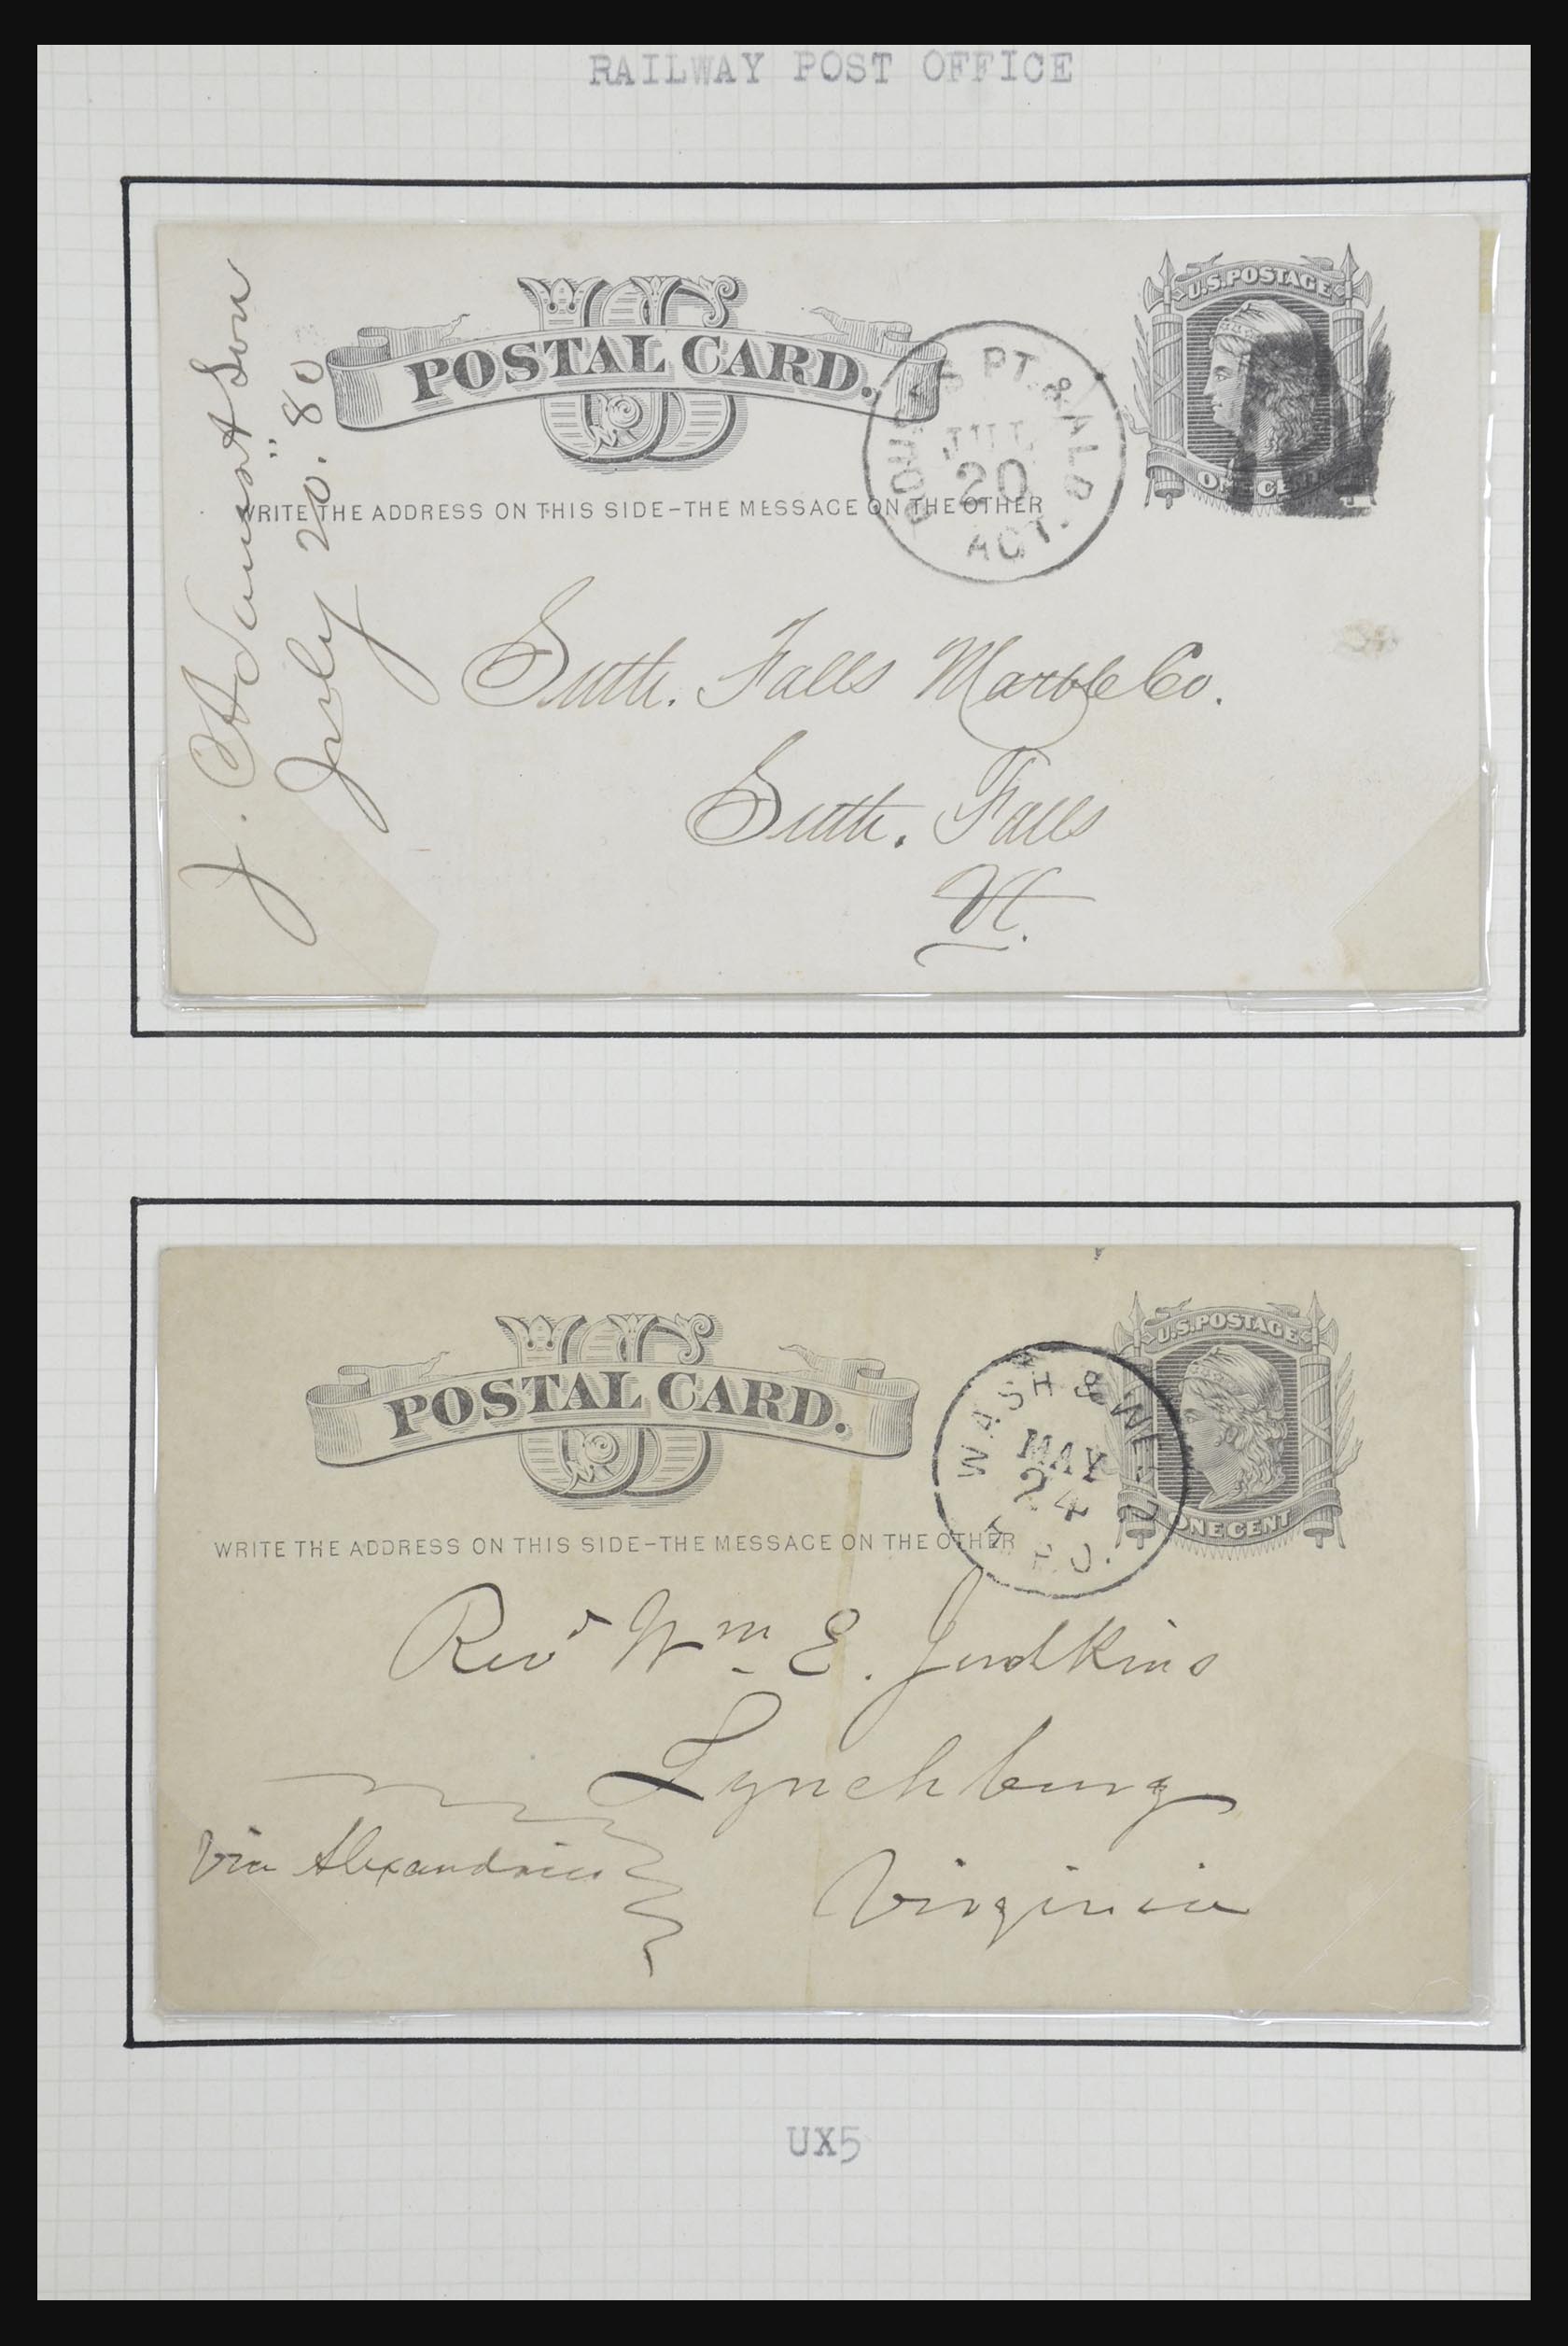 RAILWAY POST OFFICE
US
POSTAL CARD.
U.S.POSTAGE
ONE CENT
PT. & ALB
JUL
20
AGT.
WRITE THE ADDRESS ON THIS SIDE-THE MESSAGE ON THE OTHER
Son
July 20. "80
Suth. Falls Marble Co.
Suth. Falls
Vt.
US
POSTAL CARD.
U.S.POSTAGE
ONE CENT
WASH &
MAY
24
WRITE THE ADDRESS ON THIS SIDE-THE MESSAGE ON THE OTHER
Revd Wm E. Judkins
Lynchburg
Via Alexandria
Virginia
UX5